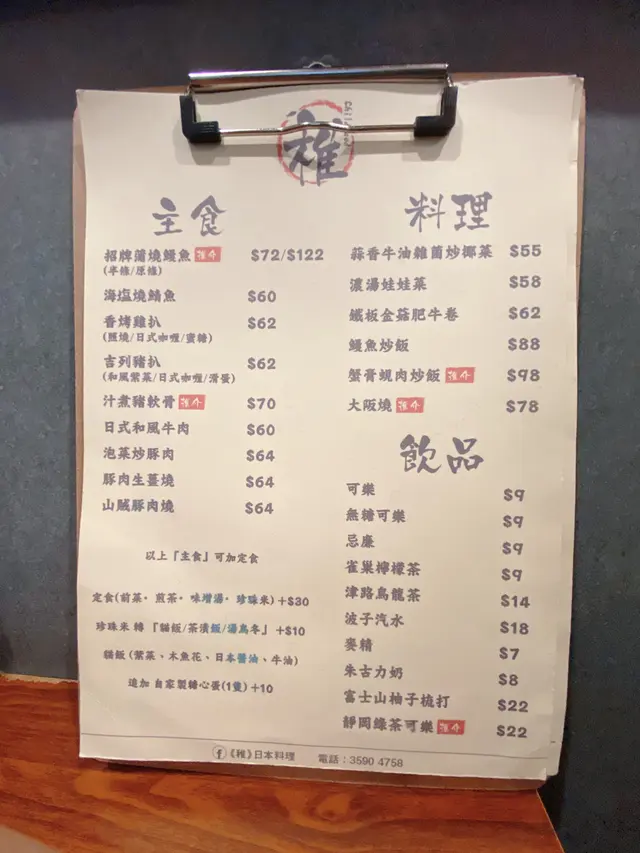 稚
主食
招牌蒲燒鰻魚 推介 $72/$122
(半條/原條)
海塩燒鯖魚 $60
香烤雞扒 $62
(照燒/日式咖喱/蜜糖)
吉列豬扒 $62
(和風紫菜/日式咖喱/滑蛋)
汁煮豬軟骨 推介 $70
日式和風牛肉 $60
泡菜炒豚肉 $64
豚肉生薑燒 $64
山賊豚肉燒 $64
以上「主食」可加定食
定食(前菜・煎茶・味增湯・珍珠米)+$30
珍珠米 轉 「貓飯/茶漬飯/湯烏冬」 +$10
貓飯 (紫菜、木魚花、日本醬油、牛油)
追加 自家製糖心蛋(1隻) +10
料理
蒜香牛油雜菌炒椰菜 $55
濃湯娃娃菜 $58
鐵板金菇肥牛卷 $62
鰻魚炒飯 $88
蟹膏蜆肉炒飯 推介 $98
大阪燒 推介 $78
飲品
可樂 $9
無糖可樂 $9
忌廉 $9
雀巢檸檬茶 $9
津路烏龍茶 $14
波子汽水 $18
麥精 $7
朱古力奶 $8
富士山柚子梳打 $22
靜岡綠茶可樂 推介 $22
《稚》日本料理 電話：3590 4758